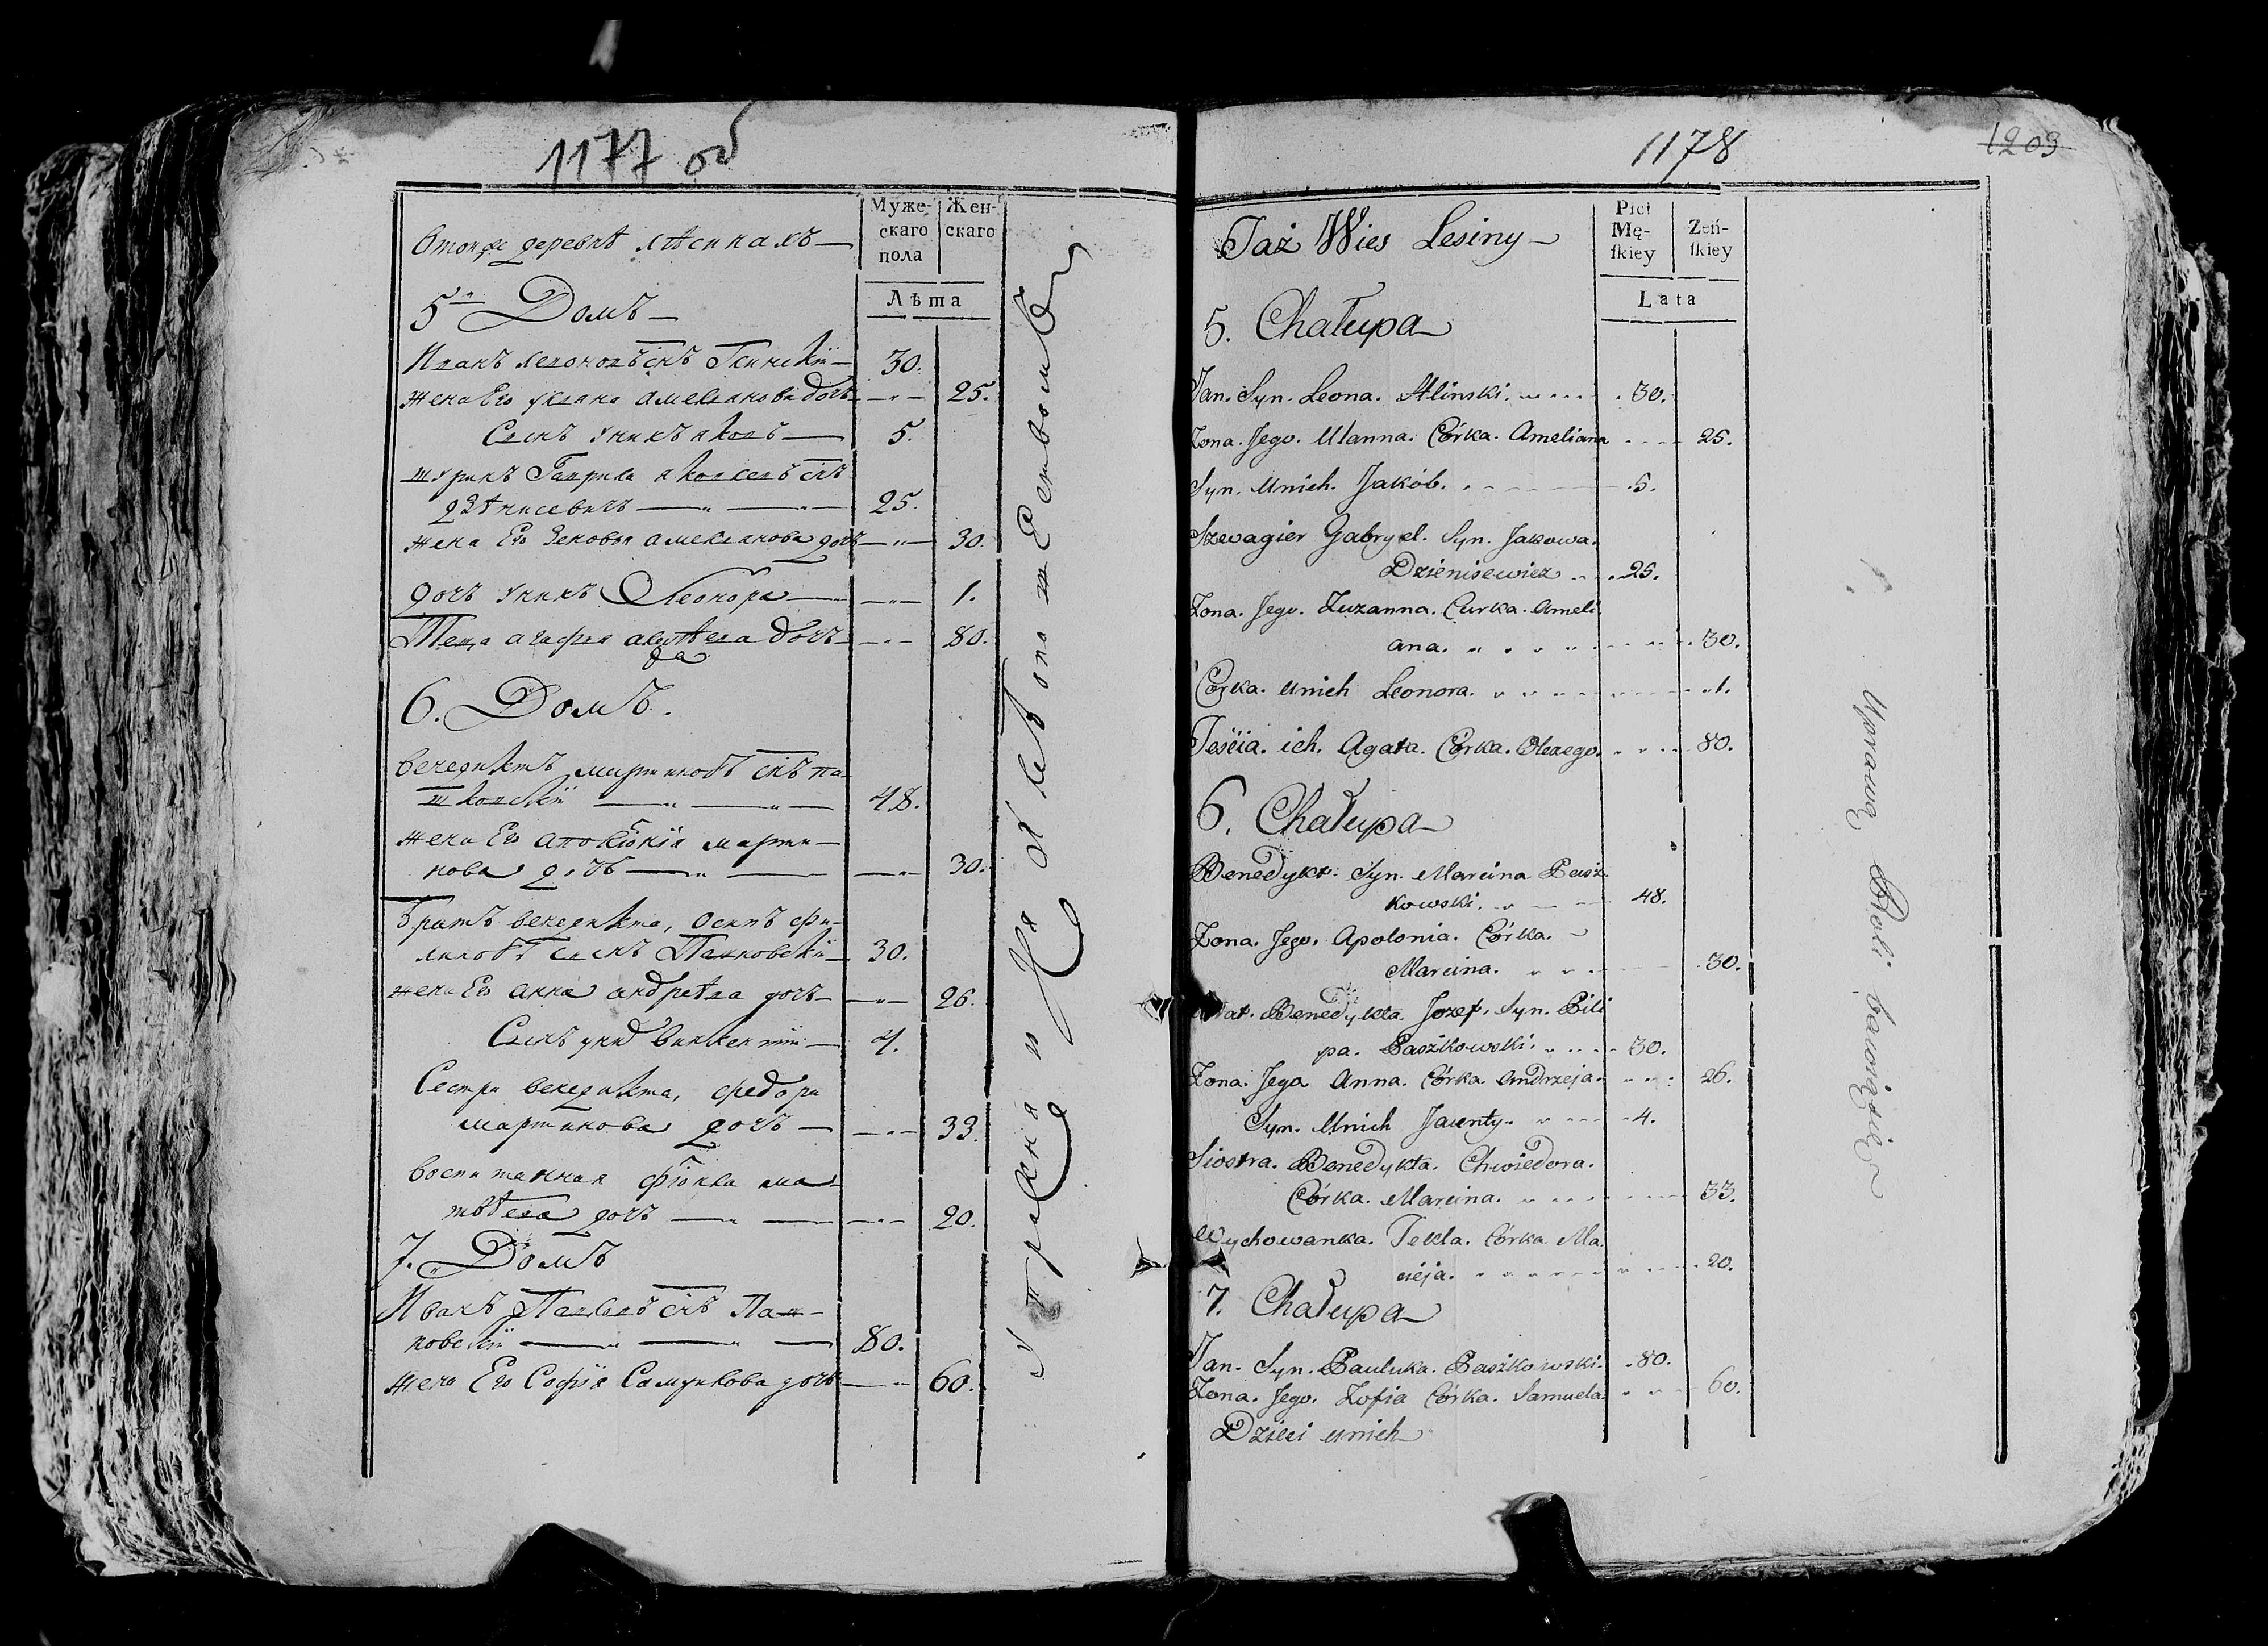 1177 об
Муже-
скаго
пола
Жен-
скаго
Лѣта
Втойже деревнѣ Лѣсинахъ
5й Домъ
Иванъ Леоновъ снъ Глинскій 30.
Жена Его Ульяна Амельянова дочь 25.
Сынъ Унихъ Яковъ 5.
Шуринъ Гаврила Яковлевъ снъ
Дзѣнисевичъ 25.
Жена Его Зеновья Амельянова дочь 30.
Дочь Унихъ Элеонора 1.
Теща Агафья дочь 80.
6. Домъ.
Бенедиктъ Мартиновъ снъ Па-
шковскій 48.
Жена Его Аполонія Марти-
нова дочь 30.
Братъ Бенедикта, Осипъ Фи-
липовъ сынъ Пашковскій 30.
Жена Его Анна Андрѣева дочь 26.
Сынъ унихъ Викентій 4.
Сестра Бенедикта, Федора
Мартинова дочь 33.
Воспитанная Фіокла Ма-
твѣева дочь 20.
7. Домъ
Иванъ Павловъ снъ Паш-
ковскій 80.
Жена Его Софія Самуилова дочь 60.
1178
1203
Płci
Mę-
ſkiey
Żeń-
ſkiey
Lata
Taż Wies Lesiny
5. Chałupa
Jan. Syn. Leona. Hlinski. 30.
Żona. Jego. Ulanna. Córka. Ameliana 25.
Syn. Unich. Jakób. 5.
Szwagier Gabryel. Syn. Jakowa.
Dzienisewicz 25.
Żona. Jego. Zuzanna. Curka. Ameli
ana. 30.
Córka. unich Leonora. 1.
Teścia. ich. Agata. Córka. 80.
6. Chałupa
Benedykt. Syn. Marcina Pasz-
kowski. 48.
Żona. Jego. Apolonia. Córka.
Marcina. 30.
Brat. Benedykta. Jozef. Syn. Pili
pa. Paszkowski. 30.
Żona. Jego Anna. Córka. Andrzeja. 26.
Syn. Unich 4.
Siostra. Benedykta. Chwiedora.
Córka. Marcina. 33.
Wychowanka. Tekla. Córka Ma.
cieja. 20.
7. Chałupa
Jan. Syn. Pauluka. Paszkowski. 80.
Żona. Jego. Zofia Córka. Samuela. 60.
Dzieci unich